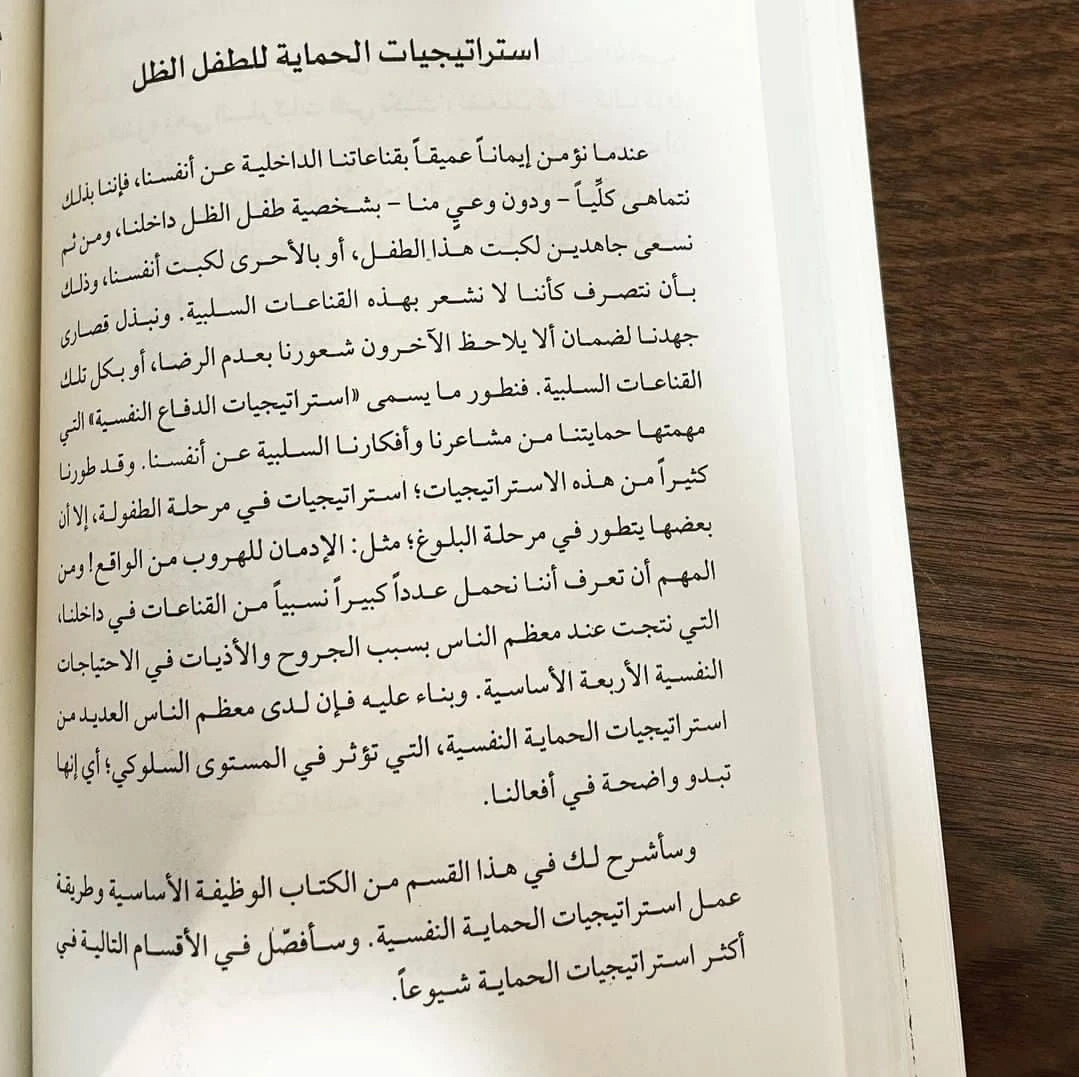 استراتيجيات الحماية للطفل الظل
عندما نؤمن إيماناً عميقاً بقناعاتنا الداخلية عن أنفسنا، فإننا بذلك
نتماهى كلِّياً – ودون وعيٍ منا – بشخصية طفل الظل داخلنا، ومن ثم
نسعى جاهدين لكبت هذا الطفل، أو بالأحرى لكبت أنفسنا، وذلك
بأن نتصرف كأننا لا نشعر بهذه القناعات السلبية. ونبذل قصارى
جهدنا لضمان ألا يلاحظ الآخرون شعورنا بعدم الرضا، أو بكل تلك
القناعات السلبية. فنطور ما يسمى «استراتيجيات الدفاع النفسية» التي
مهمتها حمايتنا من مشاعرنا وأفكارنا السلبية عن أنفسنا. وقد طورنا
كثيراً من هذه الاستراتيجيات؛ استراتيجيات في مرحلة الطفولة، إلا أن
بعضها يتطور في مرحلة البلوغ؛ مثل: الإدمان للهروب من الواقع! ومن
المهم أن تعرف أننا نحمل عدداً كبيراً نسبياً من القناعات في داخلنا،
التي نتجت عند معظم الناس بسبب الجروح والأذيات في الاحتياجات
النفسية الأربعة الأساسية. وبناء عليه فإن لدى معظم الناس العديد من
استراتيجيات الحماية النفسية، التي تؤثر في المستوى السلوكي؛ أي إنها
تبدو واضحة في أفعالنا.
وسأشرح لك في هذا القسم من الكتاب الوظيفة الأساسية وطريقة
عمل استراتيجيات الحماية النفسية. وسأفصّل في الأقسام التالية في
أكثر استراتيجيات الحماية شيوعاً.